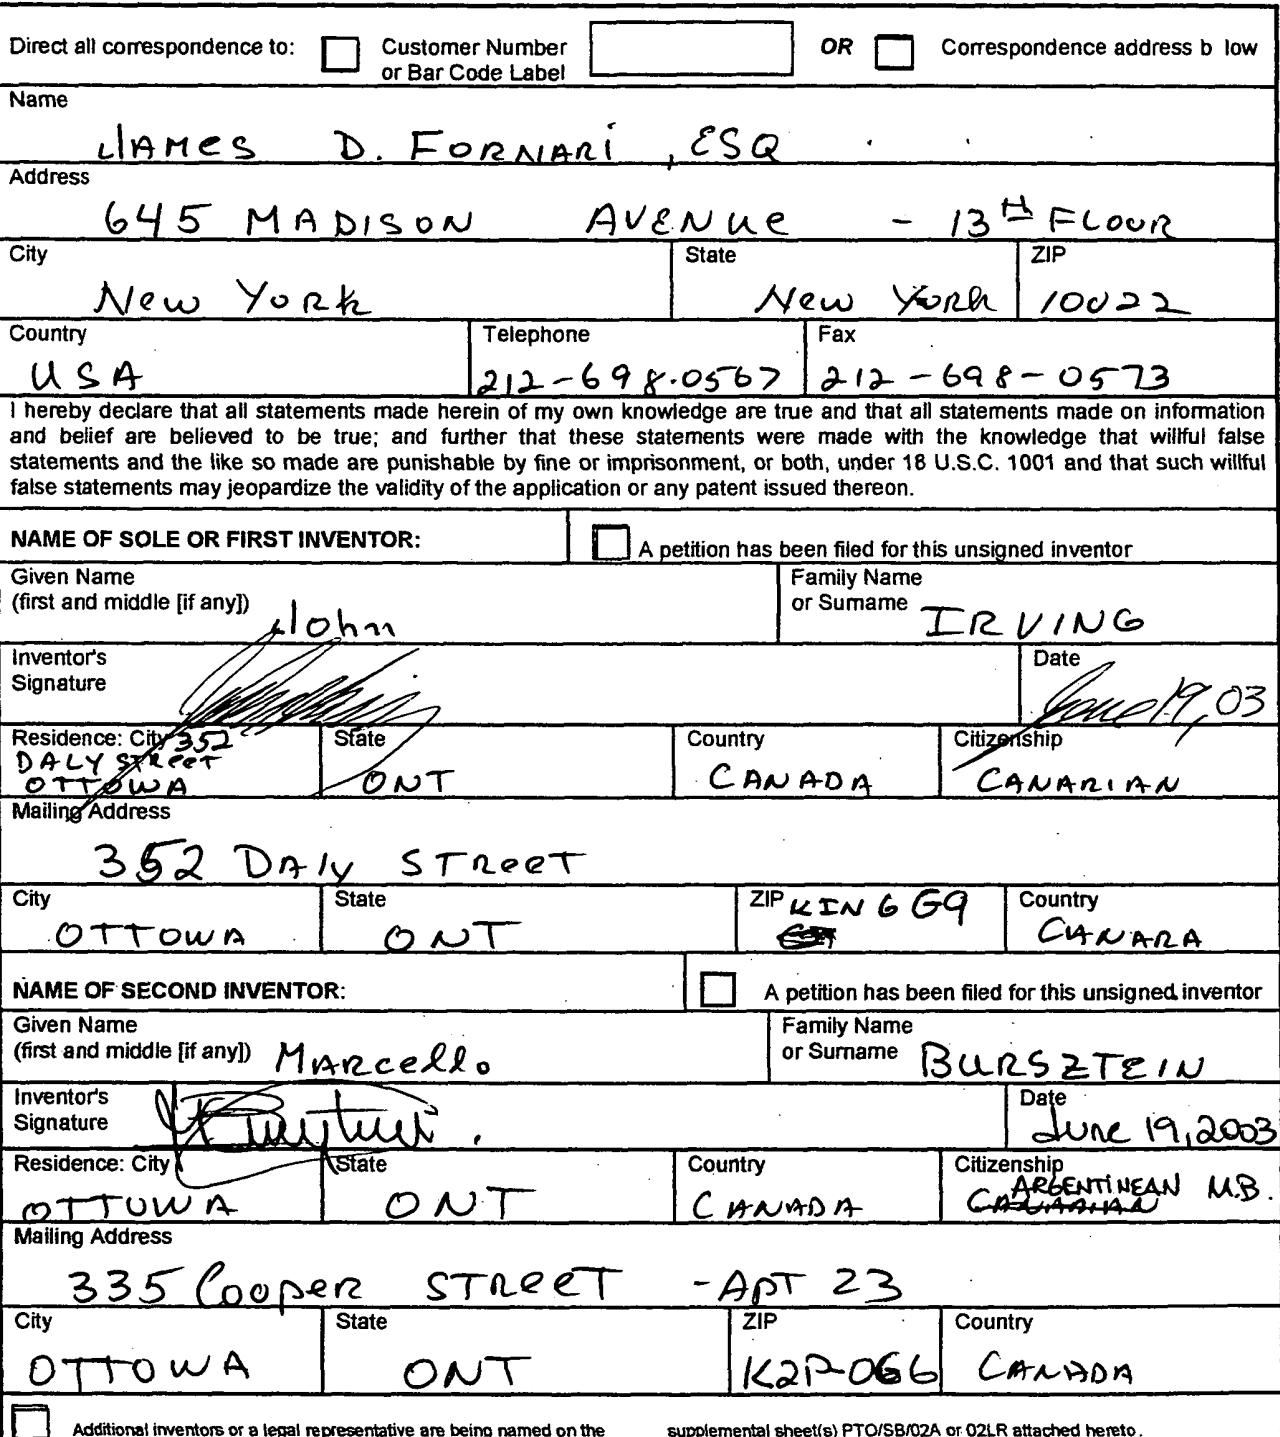 Direct all correspondence to: Customer Number OR Correspondence address b low
or Bar Code Label
Name
JAMES D. FORNARI, ESQ
Address
645 MADISON AVENUE - 13TH FLOUR
City State ZIP
New York New York 10022
Country Telephone Fax
USA 212-698-0567 212-698-0573
I hereby declare that all statements made herein of my own knowledge are true and that all statements made on information
and belief are believed to be true; and further that these statements were made with the knowledge that willful false
statements and the like so made are punishable by fine or imprisonment, or both, under 18 U.S.C. 1001 and that such willful
false statements may jeopardize the validity of the application or any patent issued thereon.
NAME OF SOLE OR FIRST INVENTOR: A petition has been filed for this unsigned inventor
Given Name Family Name
(first and middle [if any]) John or Surname IRVING
Inventor's Date
Signature June 19, 03
Residence: City 352 State Country Citizenship
DALY STREET
OTTOWA ONT CANADA CANARIAN
Mailing Address
352 DAly STReeT
City State ZIP KIN 6G9 Country
OTTOWA ONT CANARA
NAME OF SECOND INVENTOR: A petition has been filed for this unsigned inventor
Given Name Family Name
(first and middle [if any]) MARcello or Surname BURSZTEIN
Inventor's Date
Signature June 19, 2003
Residence: City State Country Citizenship
ARGENTINEAN M.B.
OTTUWA ONT CANADA CANARIAN
Mailing Address
335 Cooper STReeT - APT 23
City State ZIP Country
OTTOWA ONT K2P-0G6 CANADA
Additional inventors or a legal representative are being named on the supplemental sheet(s) PTO/SB/02A or 02LR attached hereto.